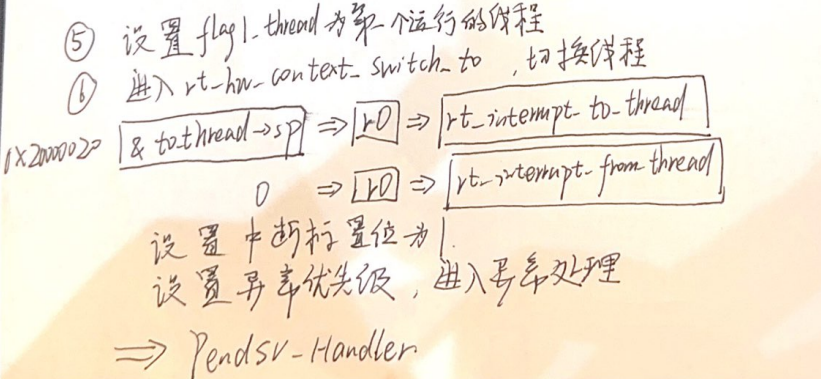 ⑤ 设置 flag1_thread 为第一个运行的线程
⑥ 进入 rt_hw_context_switch_to , 切换线程
0x20000020 & to_thread→sp ⇒ r0 ⇒ rt_interrupt_to_thread
0 ⇒ r0 ⇒ rt_interrupt_from_thread
设置中断标置位为1.
设置异常优先级, 进入异常处理
⇒ PendSV_Handler